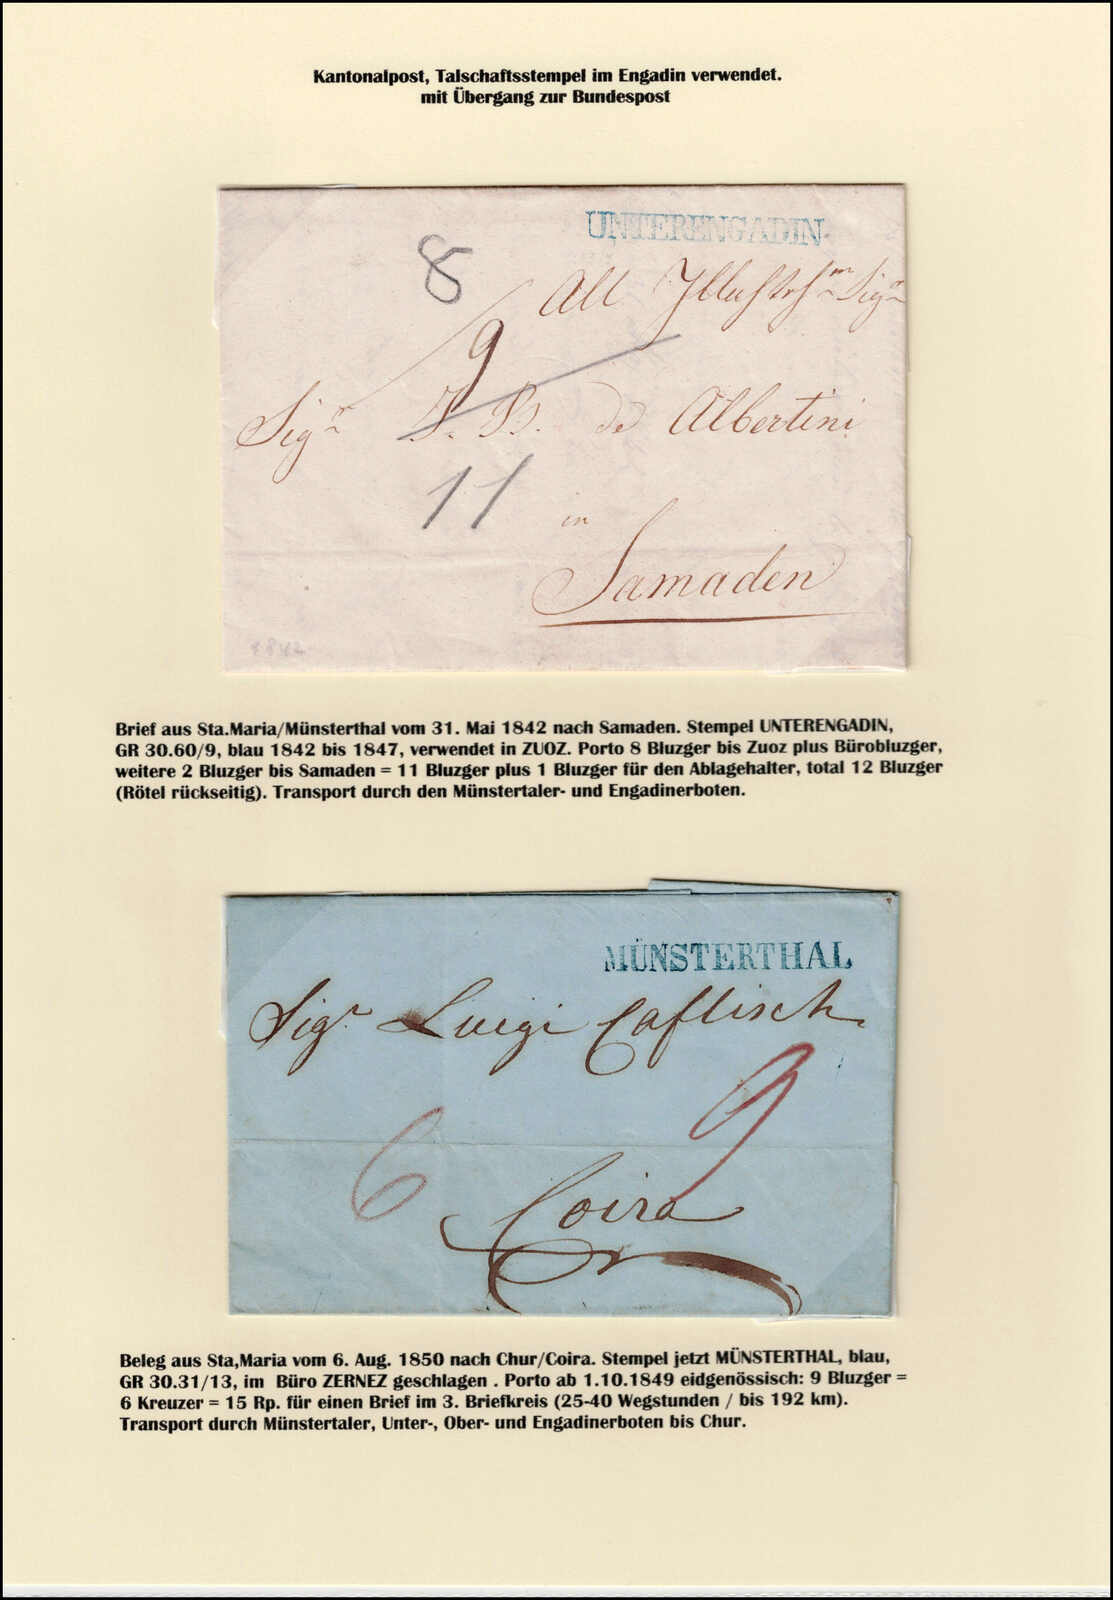 Kantonalpost, Talschaftsstempel im Engadin verwendet.
mit Übergang zur Bundespost
UNTERENGADIN
8
All Sigr
9
Sigr J. B. de Albertini
11
in
Samaden
1842
Brief aus Sta.Maria/Münsterthal vom 31. Mai 1842 nach Samaden. Stempel UNTERENGADIN,
GR 30.60/9, blau 1842 bis 1847, verwendet in ZUOZ. Porto 8 Bluzger bis Zuoz plus Bürobluzger,
weitere 2 Bluzger bis Samaden = 11 Bluzger plus 1 Bluzger für den Ablagehalter, total 12 Bluzger
(Rötel rückseitig). Transport durch den Münstertaler- und Engadinerboten.
MÜNSTERTHAL
Sigr. Luigi Caflisch
9
6
Coira
Beleg aus Sta,Maria vom 6. Aug. 1850 nach Chur/Coira. Stempel jetzt MÜNSTERTHAL, blau,
GR 30.31/13, im Büro ZERNEZ geschlagen . Porto ab 1.10.1849 eidgenössisch: 9 Bluzger =
6 Kreuzer = 15 Rp. für einen Brief im 3. Briefkreis (25-40 Wegstunden / bis 192 km).
Transport durch Münstertaler, Unter-, Ober- und Engadinerboten bis Chur.